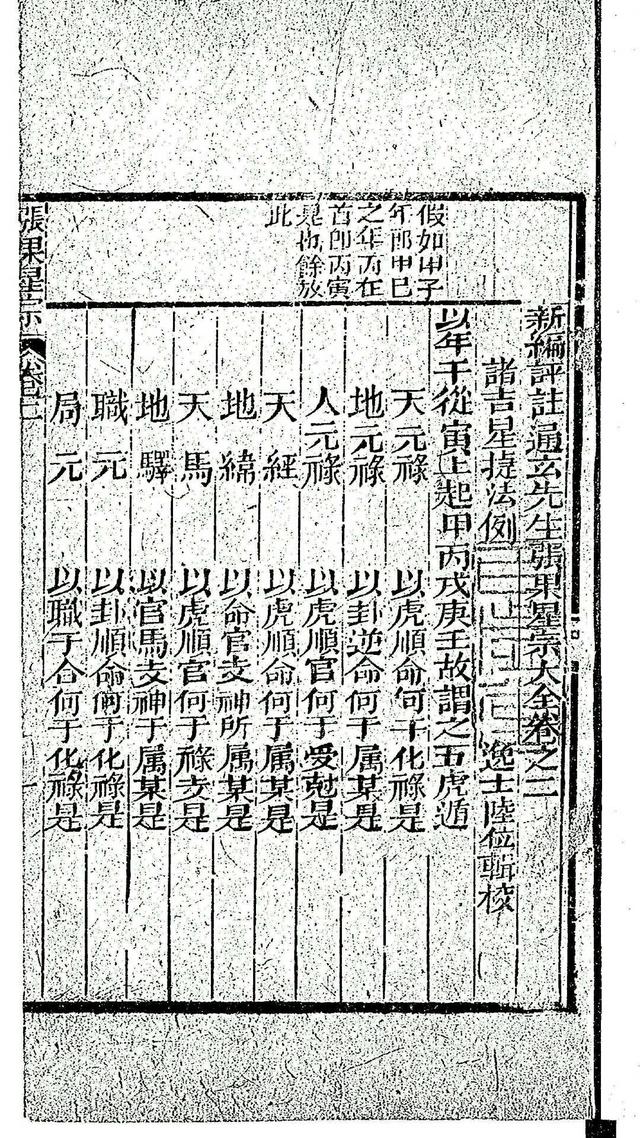 新編評註通玄先生張果星宗大全卷之二
諸吉星捷法例 逸士陸位輯校
假如甲子
年卽甲巳
之年丙在
首卽丙寅
是也餘放
此
以年干從寅上起甲丙戊庚壬故謂之五虎遁
天元祿 以虎順命何干化祿是
地元祿 以卦逆命何干屬某是
人元祿 以虎順官何于受尅是
天經 以虎順命何于屬某是
地緯 以命官支神所属某是
天馬 以虎順官何于祿支是
地驛 以官馬支神于属某是
職元 以卦順命何于化祿是
局元 以職于合何于化祿是
張果星宗 卷二